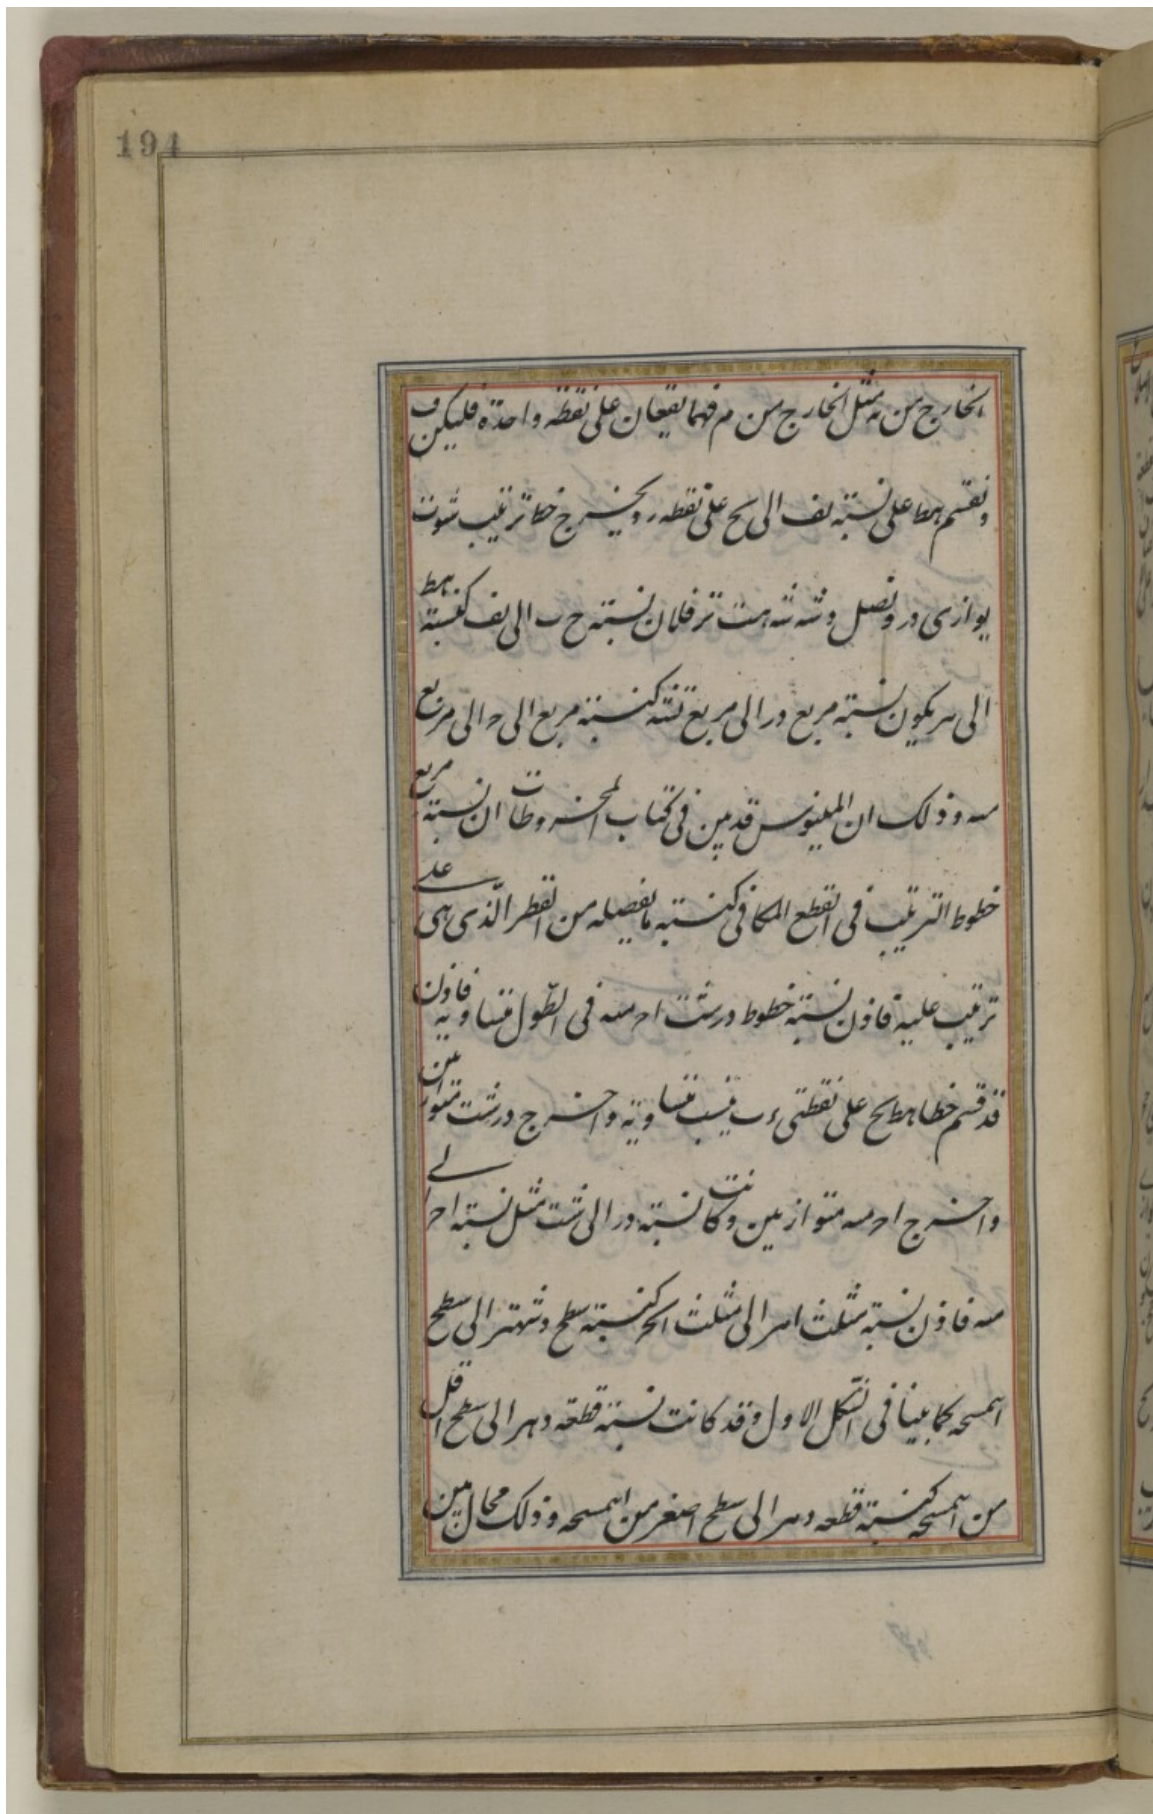 194
الخارج من ه مثل الخارج من م فهما يقعان على نقطة واحدة فليكن ف
ونقسم هط على نسبة نف الى ح على نقطه ر ويخرج خطا ترتيب
يوازى در ونصل فلان نسبته ح ب الى نف كنسبة هط
الى هر يكون نسبته مربع در الى مربع كنسبته مربع الى ح الى مربع
مسه وذلك ان ابلينوس قد بين فى كتاب المخروطات ان نسبته مربع
خطوط الترتيب فى القطع المكافى كنسبته ما يفصله من القطر الذى هى على
ترتيب عليه فاذن نسبته خطوط درشت احر مسه فى الطول متساويه فاذن
قد قسم خطا هط بح على نقطتى بنسب متساويه واخرج درشت متوازيين
واخرج احر مسه متوازيين وكانت نسبته در الى شت مثل نسبته احر الى
مسه فاذن نسبته مثلث اهر الى مثلث احر كنسبته سطح الى سطح
اهمسحه كما بينا فى الشكل الاول وقد كانت نسبته قطعه دهر الى سطح اقل
من اهمسحه كنسبته قطعه دهر الى سطح اصغر من اهمسحه وذلك محال بين